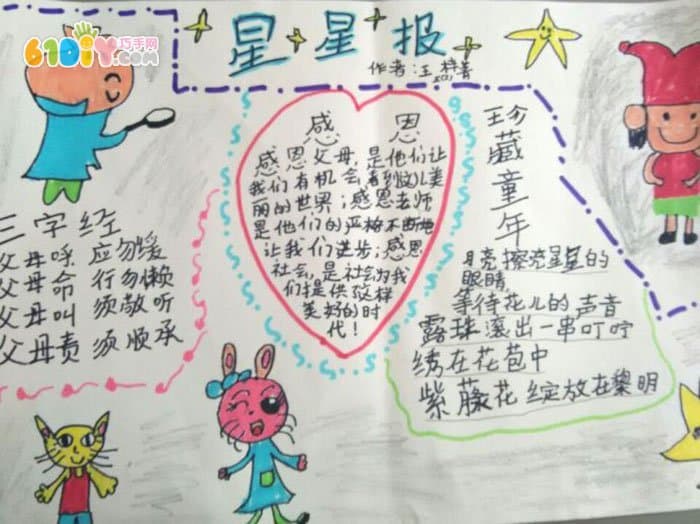 61DIY.com 巧手网
星星报
作者:王梓菁
感恩
感恩父母,是他们让
我们有机会看到这儿美
丽的世界;感恩老师
是他们的严格不断地
让我们进步;感恩
社会,是社会为我
们提供这样
美好的时
代!
珍藏童年
月亮擦亮星星的
眼睛
等待花儿的声音
露珠滚出一串叮咛
绣在花苞中
紫藤花绽放在黎明
三字经
父母呼 应勿缓
父母命 行勿懒
父母叫 须敬听
父母责 须顺承